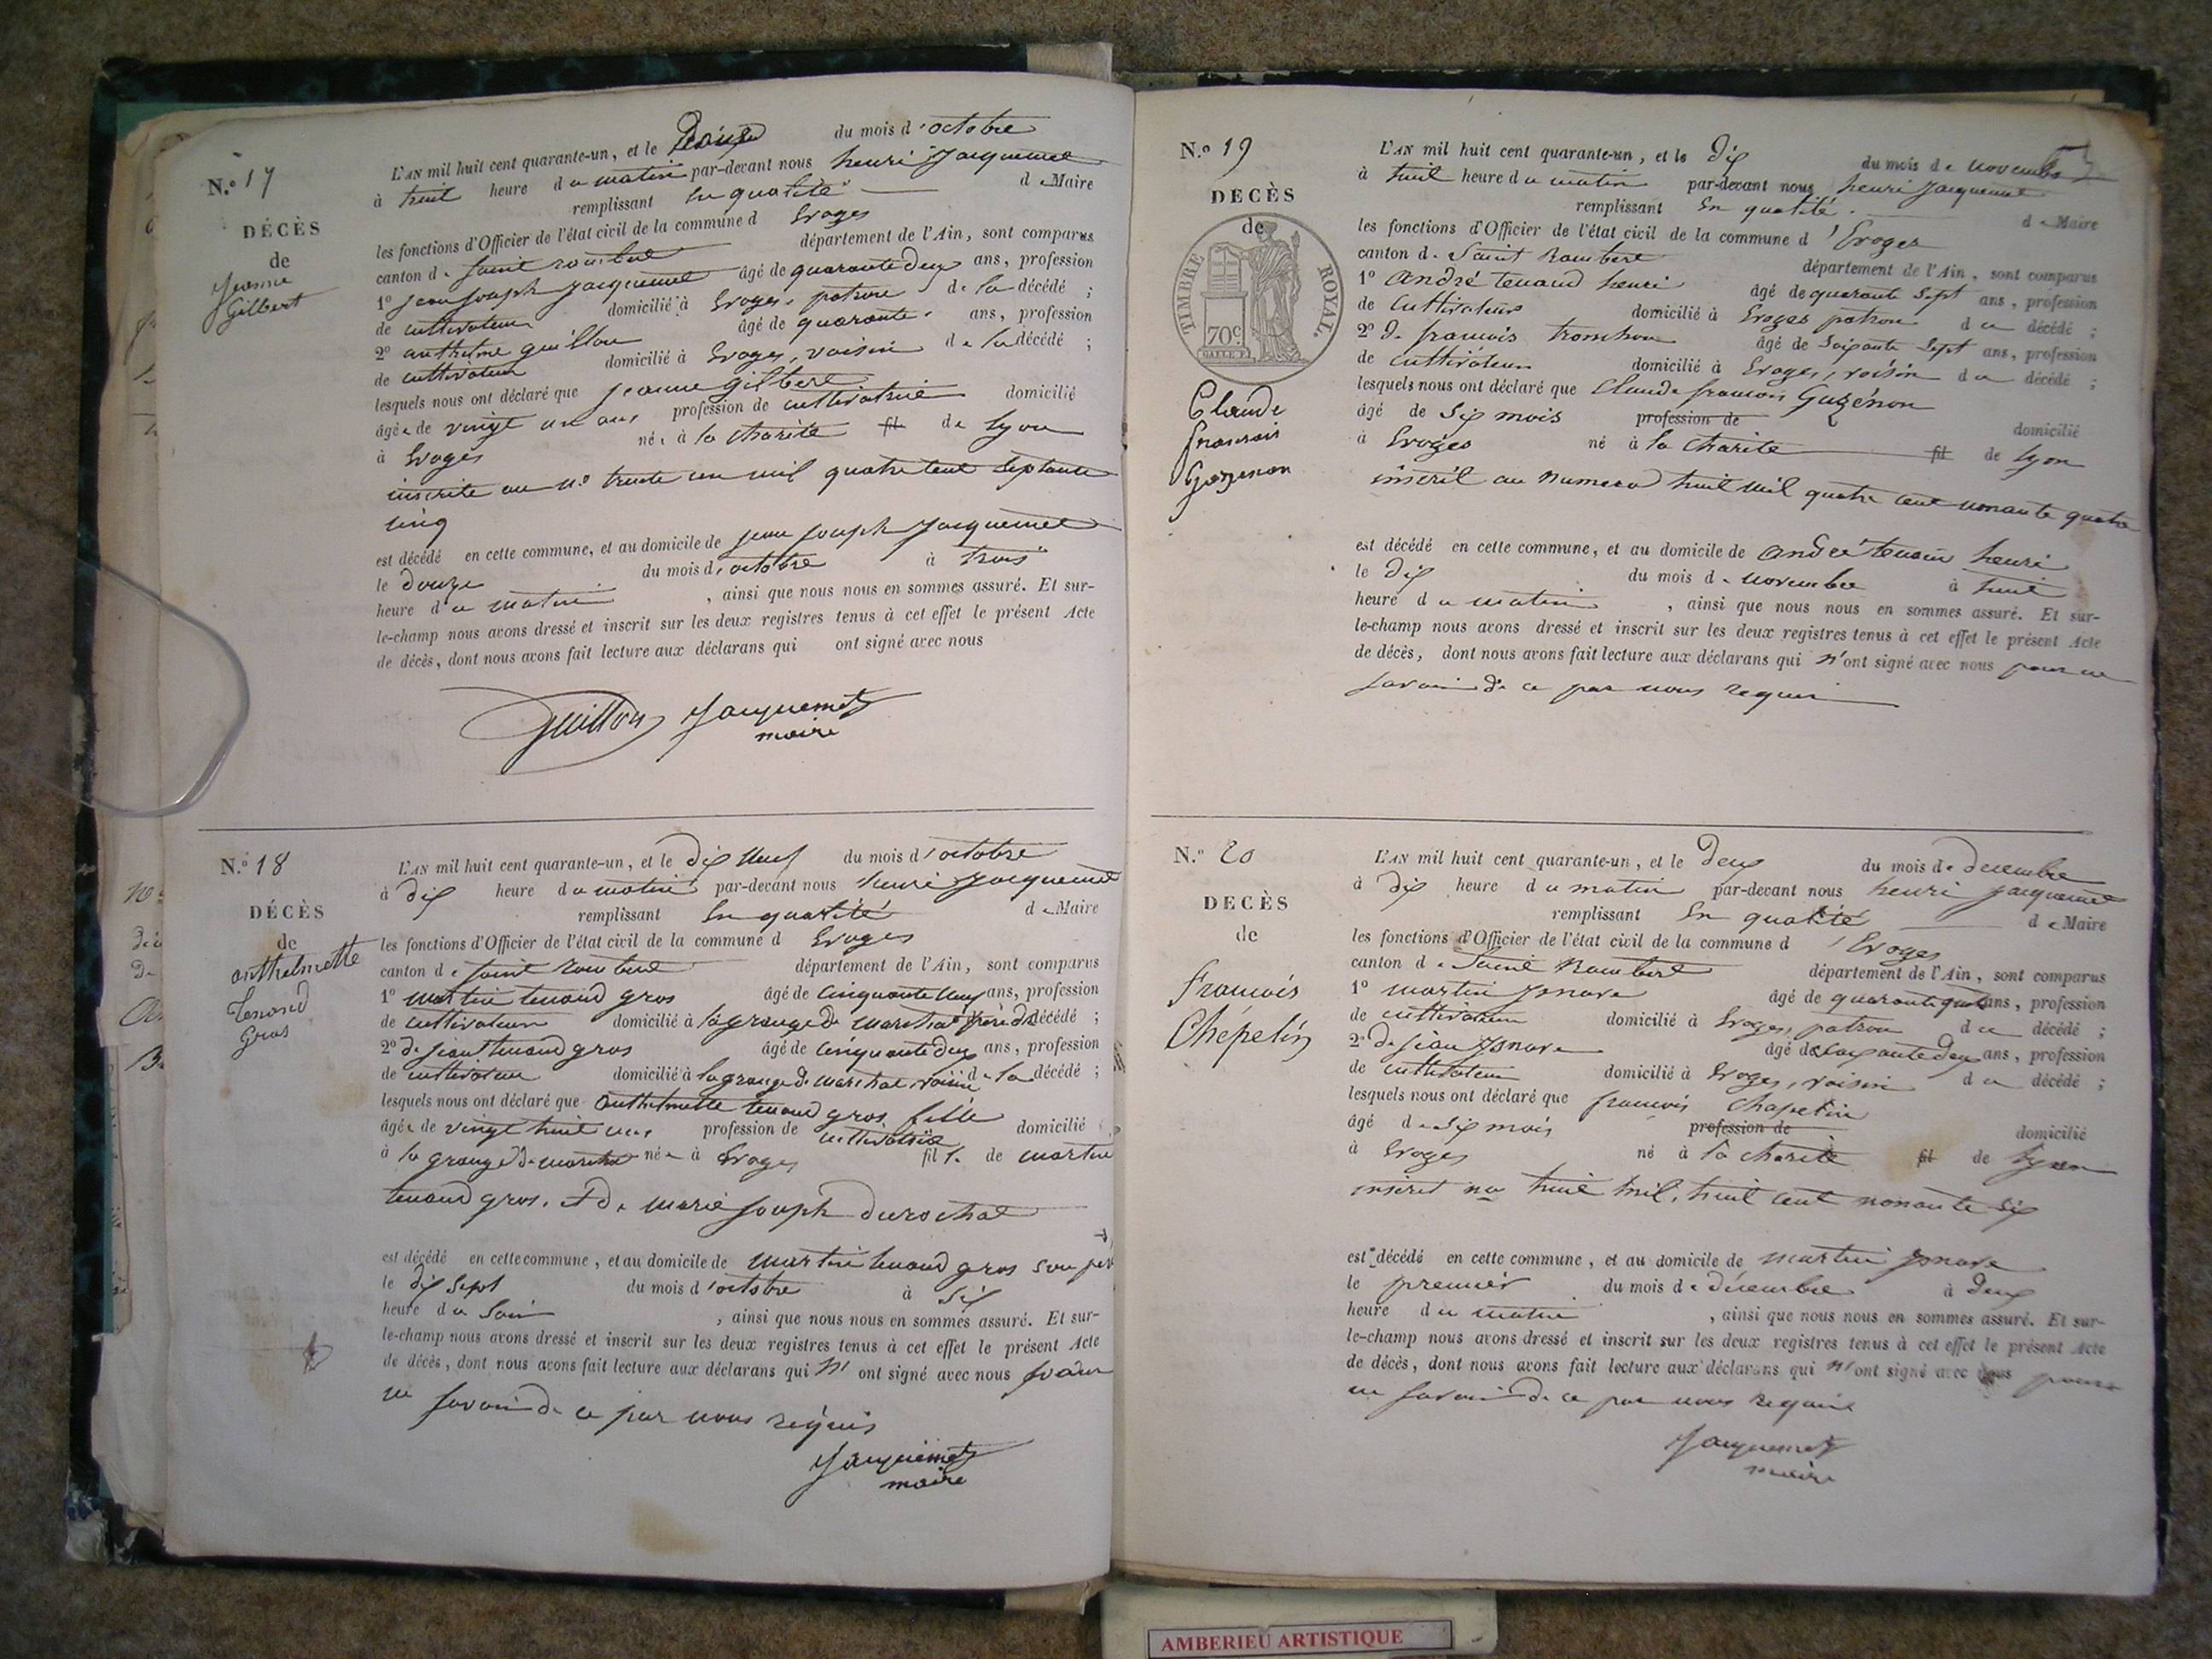 N.o 17
DÉCÈS
de
Jeanne
Gilbert
L'AN mil huit cent quarante-un, et le Douze du mois d'octobre
à huit heure du matin par-devant nous henri Jacquemet
remplissant En qualité de Maire
les fonctions d'Officier de l'état civil de la commune d Evoges
canton de Saint rambert département de l'Ain, sont comparus
1o jean joseph Jacquemet âgé de quarante deux ans, profession
de cultivateur domicilié à Evoges, patron de la décédé ;
2o anthelme guillon âgé de quarante ans, profession
de cultivateur domicilié à Evoges, voisin de la décédé ;
lesquels nous ont déclaré que jeanne gilbert
âgée de vingt un ans profession de cultivatrice domicilié
à Evoges née à la charité fil de Lyon
inscrite au no trente un mil quatre cent septante
cinq
est décédé en cette commune, et au domicile de jean joseph Jacquemet
le douze du mois d'octobre à trois
heure du matin , ainsi que nous nous en sommes assuré. Et sur-
le-champ nous avons dressé et inscrit sur les deux registres tenus à cet effet le présent Acte
de décès, dont nous avons fait lecture aux déclarans qui ont signé avec nous
Guillon Jacquemet
maire
N.o 18
DÉCÈS
de
anthelmette
Tenand
Gros
L'AN mil huit cent quarante-un, et le dix neuf du mois d'octobre
à dix heure du matin par-devant nous henri Jacquemet
remplissant En qualité de Maire
les fonctions d'Officier de l'état civil de la commune d Evoges
canton de Saint rambert département de l'Ain, sont comparus
1o martin tenand gros âgé de cinquante neuf ans, profession
de cultivateur domicilié à la grange de marchat père de décédé ;
2o de jean tenand gros âgé de cinquante deux ans, profession
de cultivateur domicilié à la grange de marchat, voisin de la décédé ;
lesquels nous ont déclaré que anthelmette tenand gros, fille
âgée de vingt huit ans profession de cultivatrice domicilié
à la grange de marchat née à Evoges fille de martin
tenand gros, et de marie joseph durochat
est décédé en cette commune, et au domicile de martin tenand gros son père
le dix sept du mois d'octobre à six
heure du soir , ainsi que nous nous en sommes assuré. Et sur-
le-champ nous avons dressé et inscrit sur les deux registres tenus à cet effet le présent Acte
de décès, dont nous avons fait lecture aux déclarans qui n'ont signé avec nous pour
ne savoir de ce par nous requis
Jacquemet
maire
N.o 19
DECÈS
de
TIMBRE ROYAL.
70c.
Claude
francois
Guzenon
L'AN mil huit cent quarante-un, et le dix du mois de novembre
à huit heure du matin par-devant nous henri Jacquemet
remplissant En qualité. de Maire
les fonctions d'Officier de l'état civil de la commune d'Evoges
canton de Saint Rambert département de l'Ain, sont comparus
1o andré tenand henri âgé de quarante sept ans, profession
de cultivateur domicilié à Evoges patron du décédé ;
2o de francois tronchon âgé de soixante sept ans, profession
de cultivateur domicilié à Evoges, voisin du décédé ;
lesquels nous ont déclaré que Claude francois Guzénon
âgé de six mois profession de domicilié
à Evoges né à la charité fil de Lyon
inscrit au numero huit mil quatre cent nonante quatre
est décédé en cette commune, et au domicile de andré tenand henri
le dix du mois de novembre à huit
heure du matin , ainsi que nous nous en sommes assuré. Et sur-
le-champ nous avons dressé et inscrit sur les deux registres tenus à cet effet le présent Acte
de décès, dont nous avons fait lecture aux déclarans qui n'ont signé avec nous pour ne
savoir de ce par nous requis
N.o 20
DECÈS
de
francois
Chépelin
L'AN mil huit cent quarante-un, et le deux du mois de decembre
à dix heure du matin par-devant nous henri Jacquemet
remplissant En qualité de Maire
les fonctions d'Officier de l'état civil de la commune d'Evoges
canton de Saint Rambert département de l'Ain, sont comparus
1o martin âgé de quarante ans, profession
de cultivateur domicilié à Evoges, patron du décédé ;
2o de jean âgé de soixante deux ans, profession
de cultivateur domicilié à Evoges, voisin du décédé ;
lesquels nous ont déclaré que francois Chapelin
âgé de six mois profession de domicilié
à Evoges né à la charité fil de Lyon
inscrit no huit mil, huit cent nonante six
est décédé en cette commune, et au domicile de martin
le premier du mois de décembre à deux
heure du matin , ainsi que nous nous en sommes assuré. Et sur-
le-champ nous avons dressé et inscrit sur les deux registres tenus à cet effet le présent Acte
de décès, dont nous avons fait lecture aux déclarans qui n'ont signé avec nous pour
ne savoir de ce par nous requis
Jacquemet
maire
AMBERIEU ARTISTIQUE